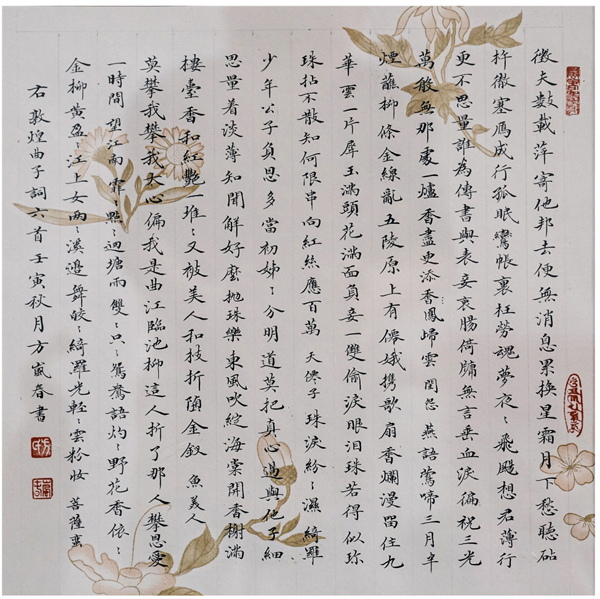 徵夫數載萍寄他邦去便無消息累換星霜月下愁聽砧
杵徹塞鴈成行孤眠鸞帳裏枉勞魂夢夜〻飛颺想君薄行
更不思量誰為傳書與表妾衷腸倚牖無言垂血淚偏祝三光
萬般無那處一爐香盡更添香鳳歸雲 閨怨 燕語鶯啼三月半
煙蘸柳條金線亂五陵原上有僊娥携歌扇香爛漫留住九
華雲一片犀玉滿頭花滿面負妾一雙偷淚眼泪珠若得似珍
珠拈不散知何限串向紅絲應百萬 天僊子 珠淚紛〻濕綺羅
少年公子負恩多當初姊〻分明道莫把真心過與他子細
思量着淡薄知聞解好麼拋珠樂東風吹綻海棠開香榭滿
樓臺香和紅艷一堆〻又被美人和枝折墮金釵 魚美人
莫攀我攀我太心偏我是曲江臨池柳這人折了那人攀恩愛
一時間 望江南 霏〻點〻迴塘雨雙〻只〻鴛鴦語灼〻野花香依〻
金柳黃盈〻江上女兩〻溪邊舞皎〻綺羅光輕〻雲粉妝 菩薩蠻
右敦煌曲子詞六首壬寅秋月方春書